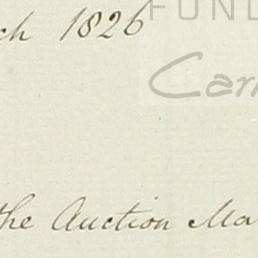 ch 1826
FUND
Car
the Auction Ma